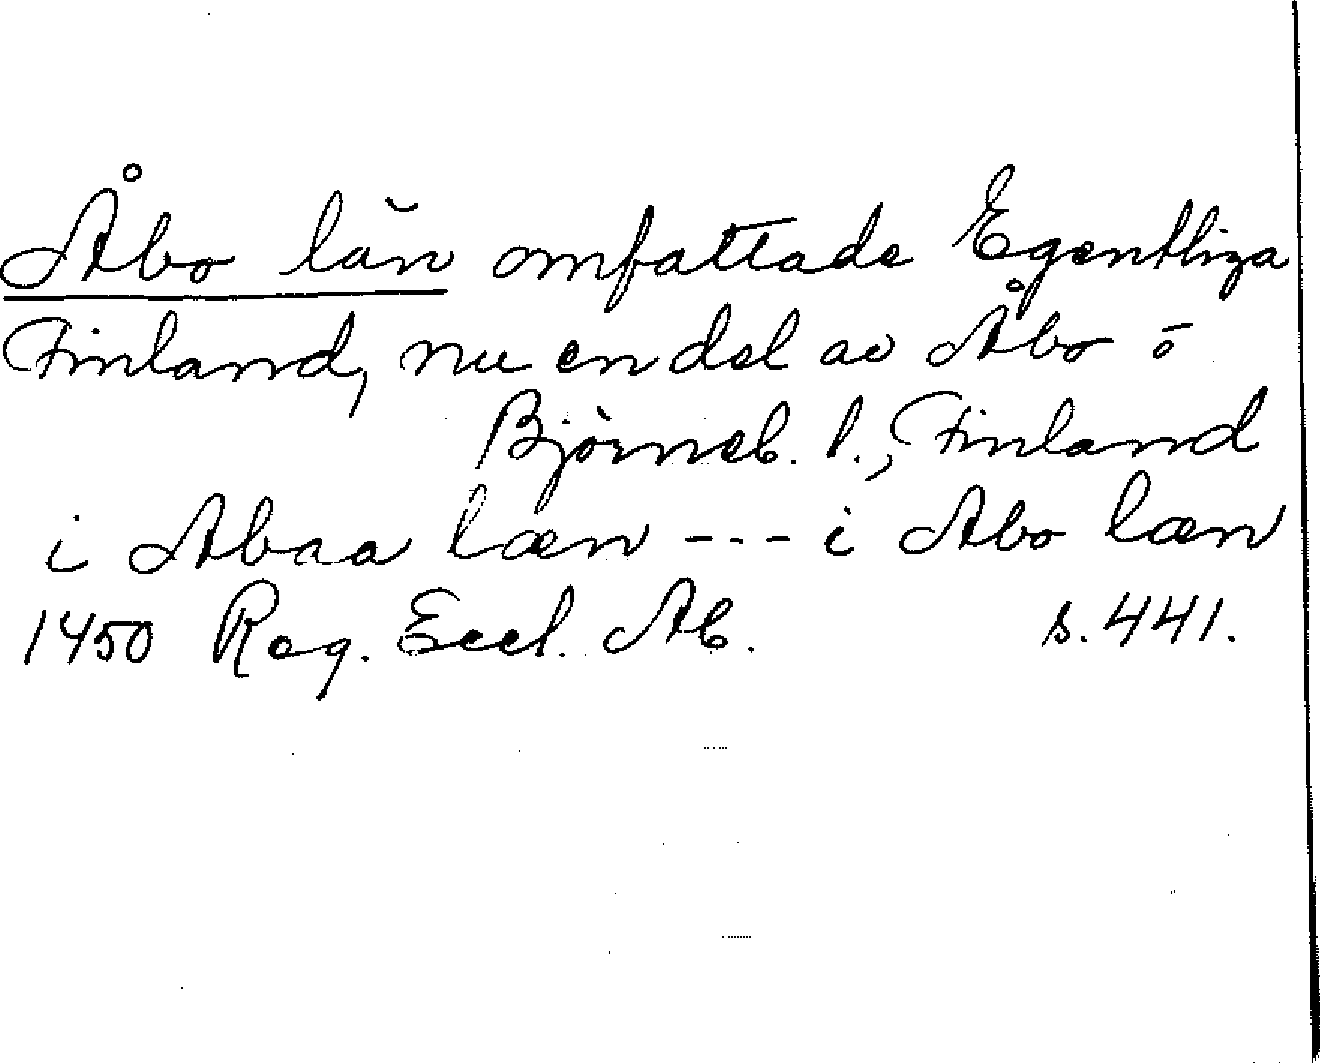 Åbo län omfattade Egentliga
Finland, nu en del av Åbo o
Björneb. l., Finland
i Abaa læn --- i Abo læn
1450 Reg. Eccl. Ab. s. 441.